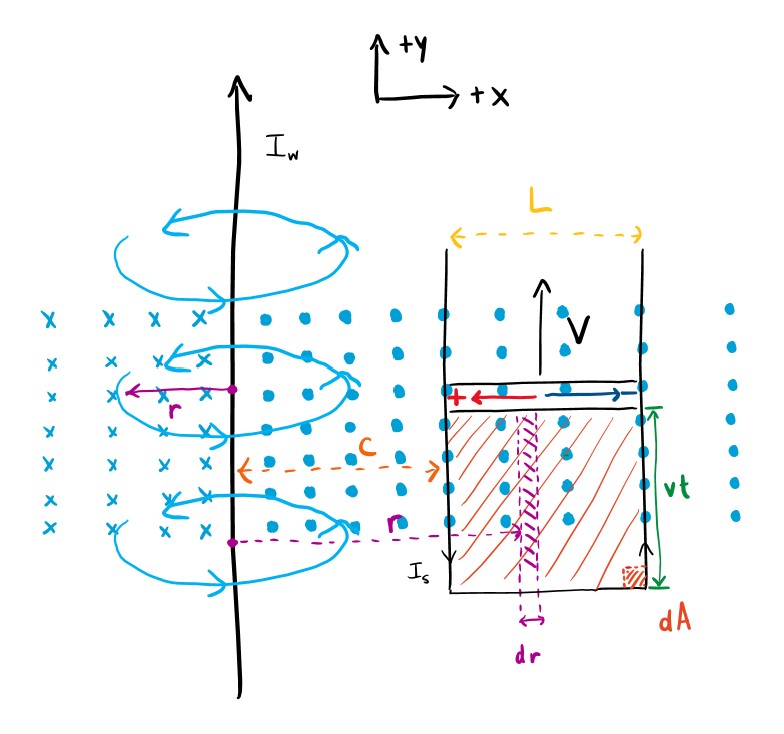 +y
+x
I_w
L
V
+
r
c
vt
r
I_s
dA
dr